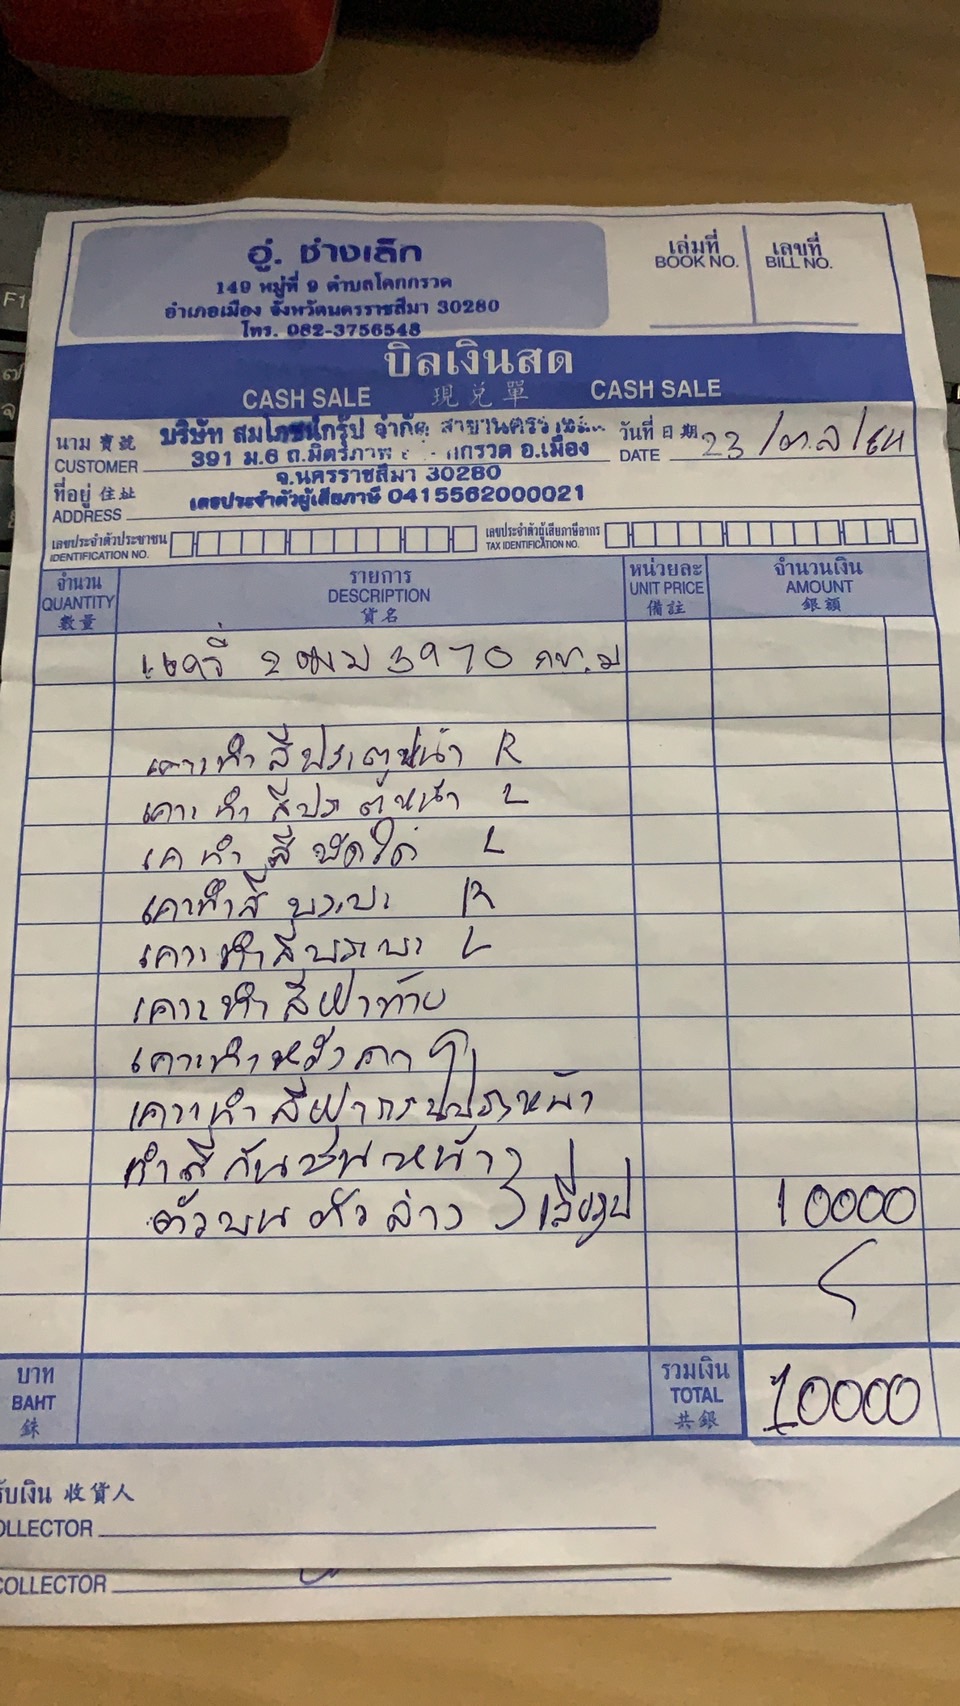 อู่. ช่างเล็ก
149 หมู่ที่ 9 ตำบลโคกกรวด
อำเภอเมือง จังหวัดนครราชสีมา 30280
โทร. 082-3756548
เล่มที่ เลขที่
BOOK NO. BILL NO.
บิลเงินสด
CASH SALE 現兑單 CASH SALE
นาม 賣號 บริษัท สมโภชน์กรุ๊ป จำกัด สาขานคร วันที่ 日期 23 / ต.ค /
CUSTOMER 391 ม.6 ถ.มิตรภาพ กรวด อ.เมือง DATE
ที่อยู่ 住址 จ.นครราชสีมา 30280
ADDRESS เลขประจำตัวผู้เสียภาษี 0415562000021
เลขประจำตัวประชาชน เลขประจำตัวผู้เสียภาษีอากร
IDENTIFICATION NO. TAX IDENTIFICATION NO.
จำนวน รายการ หน่วยละ จำนวนเงิน
QUANTITY DESCRIPTION UNIT PRICE AMOUNT
數量 貨名 備註 銀額
3970
เคาะทำสีประตูหน้า R
เคาะทำสีประตูหน้า L
เคาะทำสี L
เคาะทำสี กระบะ R
เคาะทำสีกระบะ L
เคาะทำสีฝาท้าย
เคาะทำหลังคา
เคาะทำสีฝากระโปรงหน้า
ทำสีกันชนหน้า
ตัวบน ตัวล่าง 10000
บาท รวมเงิน
BAHT TOTAL 10000
銖 共銀
รับเงิน 收貨人
OLLECTOR
COLLECTOR